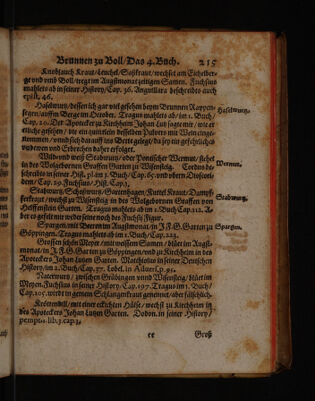 Brunnen zu Boll/ Das 4. Buch. 215
Knoblauch Kraut/ Leuchel/ Saßkraut/ wechset am Eichelber-
ge vnd vmb Boll/ treget im Augstmonat zeitigen Samen. Fuchsius
mahlets ab in seiner History/ Cap. 36. Anguillara beschreibts auch
epist. 46.
Haselwurtz/ dessen ich gar viel gesehen beym Brunnen Rappen-
segen/ auffm Berge im October. Tragus mahlets ab/ im 1. Buch/
Cap. 20. Der Apotecker zu Kirchheim Johan Lutz sagte mir/ er
Haselwurtz.
etliche gesehen/ wie ein quintlein desselben Pulvers mit Wein einge-
nommen/ vnd sich darauff ins Bette gelegt/ da jey ein gefehrliches
vnd heven vnd Erbrechen daher erfolget.
Wildrund weiß Stabwurtz/ oder Pontischer Wermut/ stehet
in des Wolgebornen Graffen Garten zu Wisensteig. Cordus be-
schreibts in seiner Hist. plan. 1. Buch/ Cap. 67. vnd obern Disscori-
dem/ Cap. 29. Fuchsius/ Hist. Cap. 1.
Wermut.
Stabwurtz/ Schoßwurtz/ Gartenhagen/ Kuttel Kraut/ Dampff-
kerkraut/ wechst zu Wisensteig in des Wolgebornen Graffen von
Helffenstein Garten. Tragus mahlets ab im 1. Buch Cap. 112. A-
ber es gefelt mir weder seine noch des Fuchsii Figur.
Stabwurtz.
Spargen/ mit Beeren im Augstmonat/ in J. F. G. Garten zu
Göppingen/ Tragus mahlets ab im 1. Buch/ Cap. 121.
Spargen.
Grossen zehm Meyer/ mit weissem Samen/ blüet im Augst-
monat/ in J. F. G. Garten zu Göppingen/ vnd zu Kirchheim in des
Apoteckers Johan Lutzen Garten. Matthiolus in seiner Deutschen
History/ im 2. Buch/ Cap. 57. Lobel. in Aduers. p. 93.
Naterwurtz/ zwischen Gräbingen vnnd Wisensteig/ blüet im
Meyen. Fuchsius in seiner History/ Cap. 197. Tragus im 1. Buch/
Cap. 105. wirdt in gemein Schlangenkraut genennet/ aber fälschlich.
Krottendill/ mit einer eckichten Hülse/ wechst zu Kirchheim in
des Apoteckers Johan Lutzen Garten. Dodon. in seiner History/
pempt. 2. lib. 3. cap. 3.
ee Groß